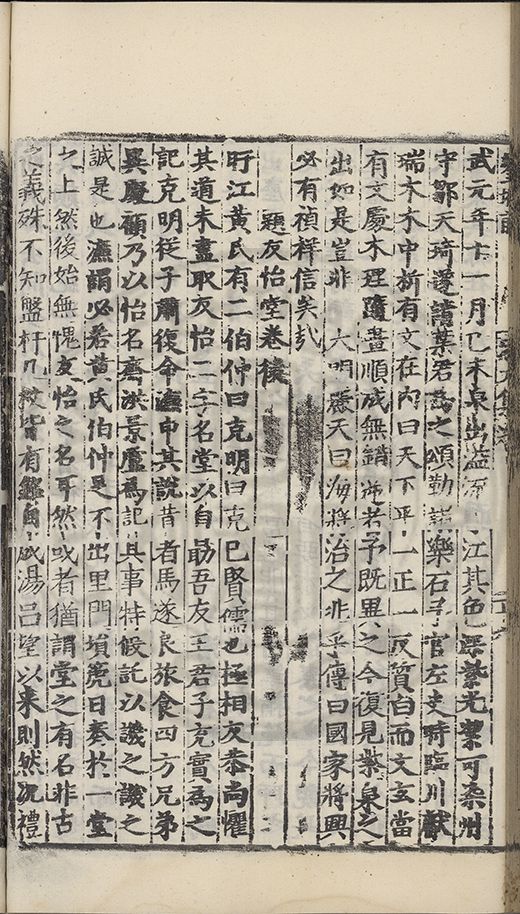 武元年十一月乙未泉出益 江其色深紫光潔可染州
守鄒天 遂請葉君 之頌勒諸樂石予官左史時臨川獻
瑞木木中 有文在內曰天下平一正一反質白而文玄當
有文處木理隨畫順成無錯 若予既異之今復見紫泉之
出如是豈非 大明麗天曰海將治之非乎傳曰國家將興
必有禎祥信矣哉
題友怡堂卷後
旴江黃氏有二伯仲曰克明曰克己賢儒也極相友恭尚懼
其道未盡取友怡二字名堂以自勗吾友王君子充實為之
記克明從子肅復命濂申其說昔者馬遂良旅食四方兄弟
異處顧乃以怡名齋洪景廬為記其事特假託以譏之譏之
誠是也濂謂必若黃氏伯仲足不出里門塤箎日奏於一堂
之上然後始無愧友怡之名耳然或者猶謂堂之有名非古
之義殊不知盤杅几杖皆有 自成湯呂望以來則然況禮